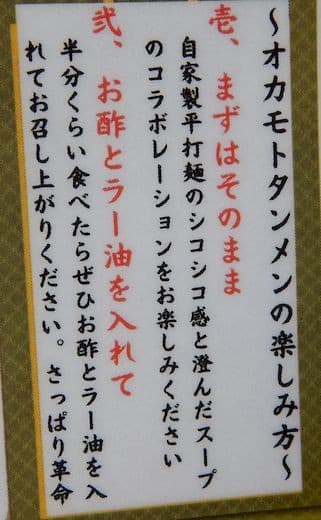 ～オカモトタンメンの楽しみ方～
壱、まずはそのまま
自家製平打麺のシコシコ感と澄んだスープ
のコラボレーションをお楽しみください
弐、お酢とラー油を入れて
半分くらい食べたらぜひお酢とラー油を入
れてお召し上がりください。さっぱり革命